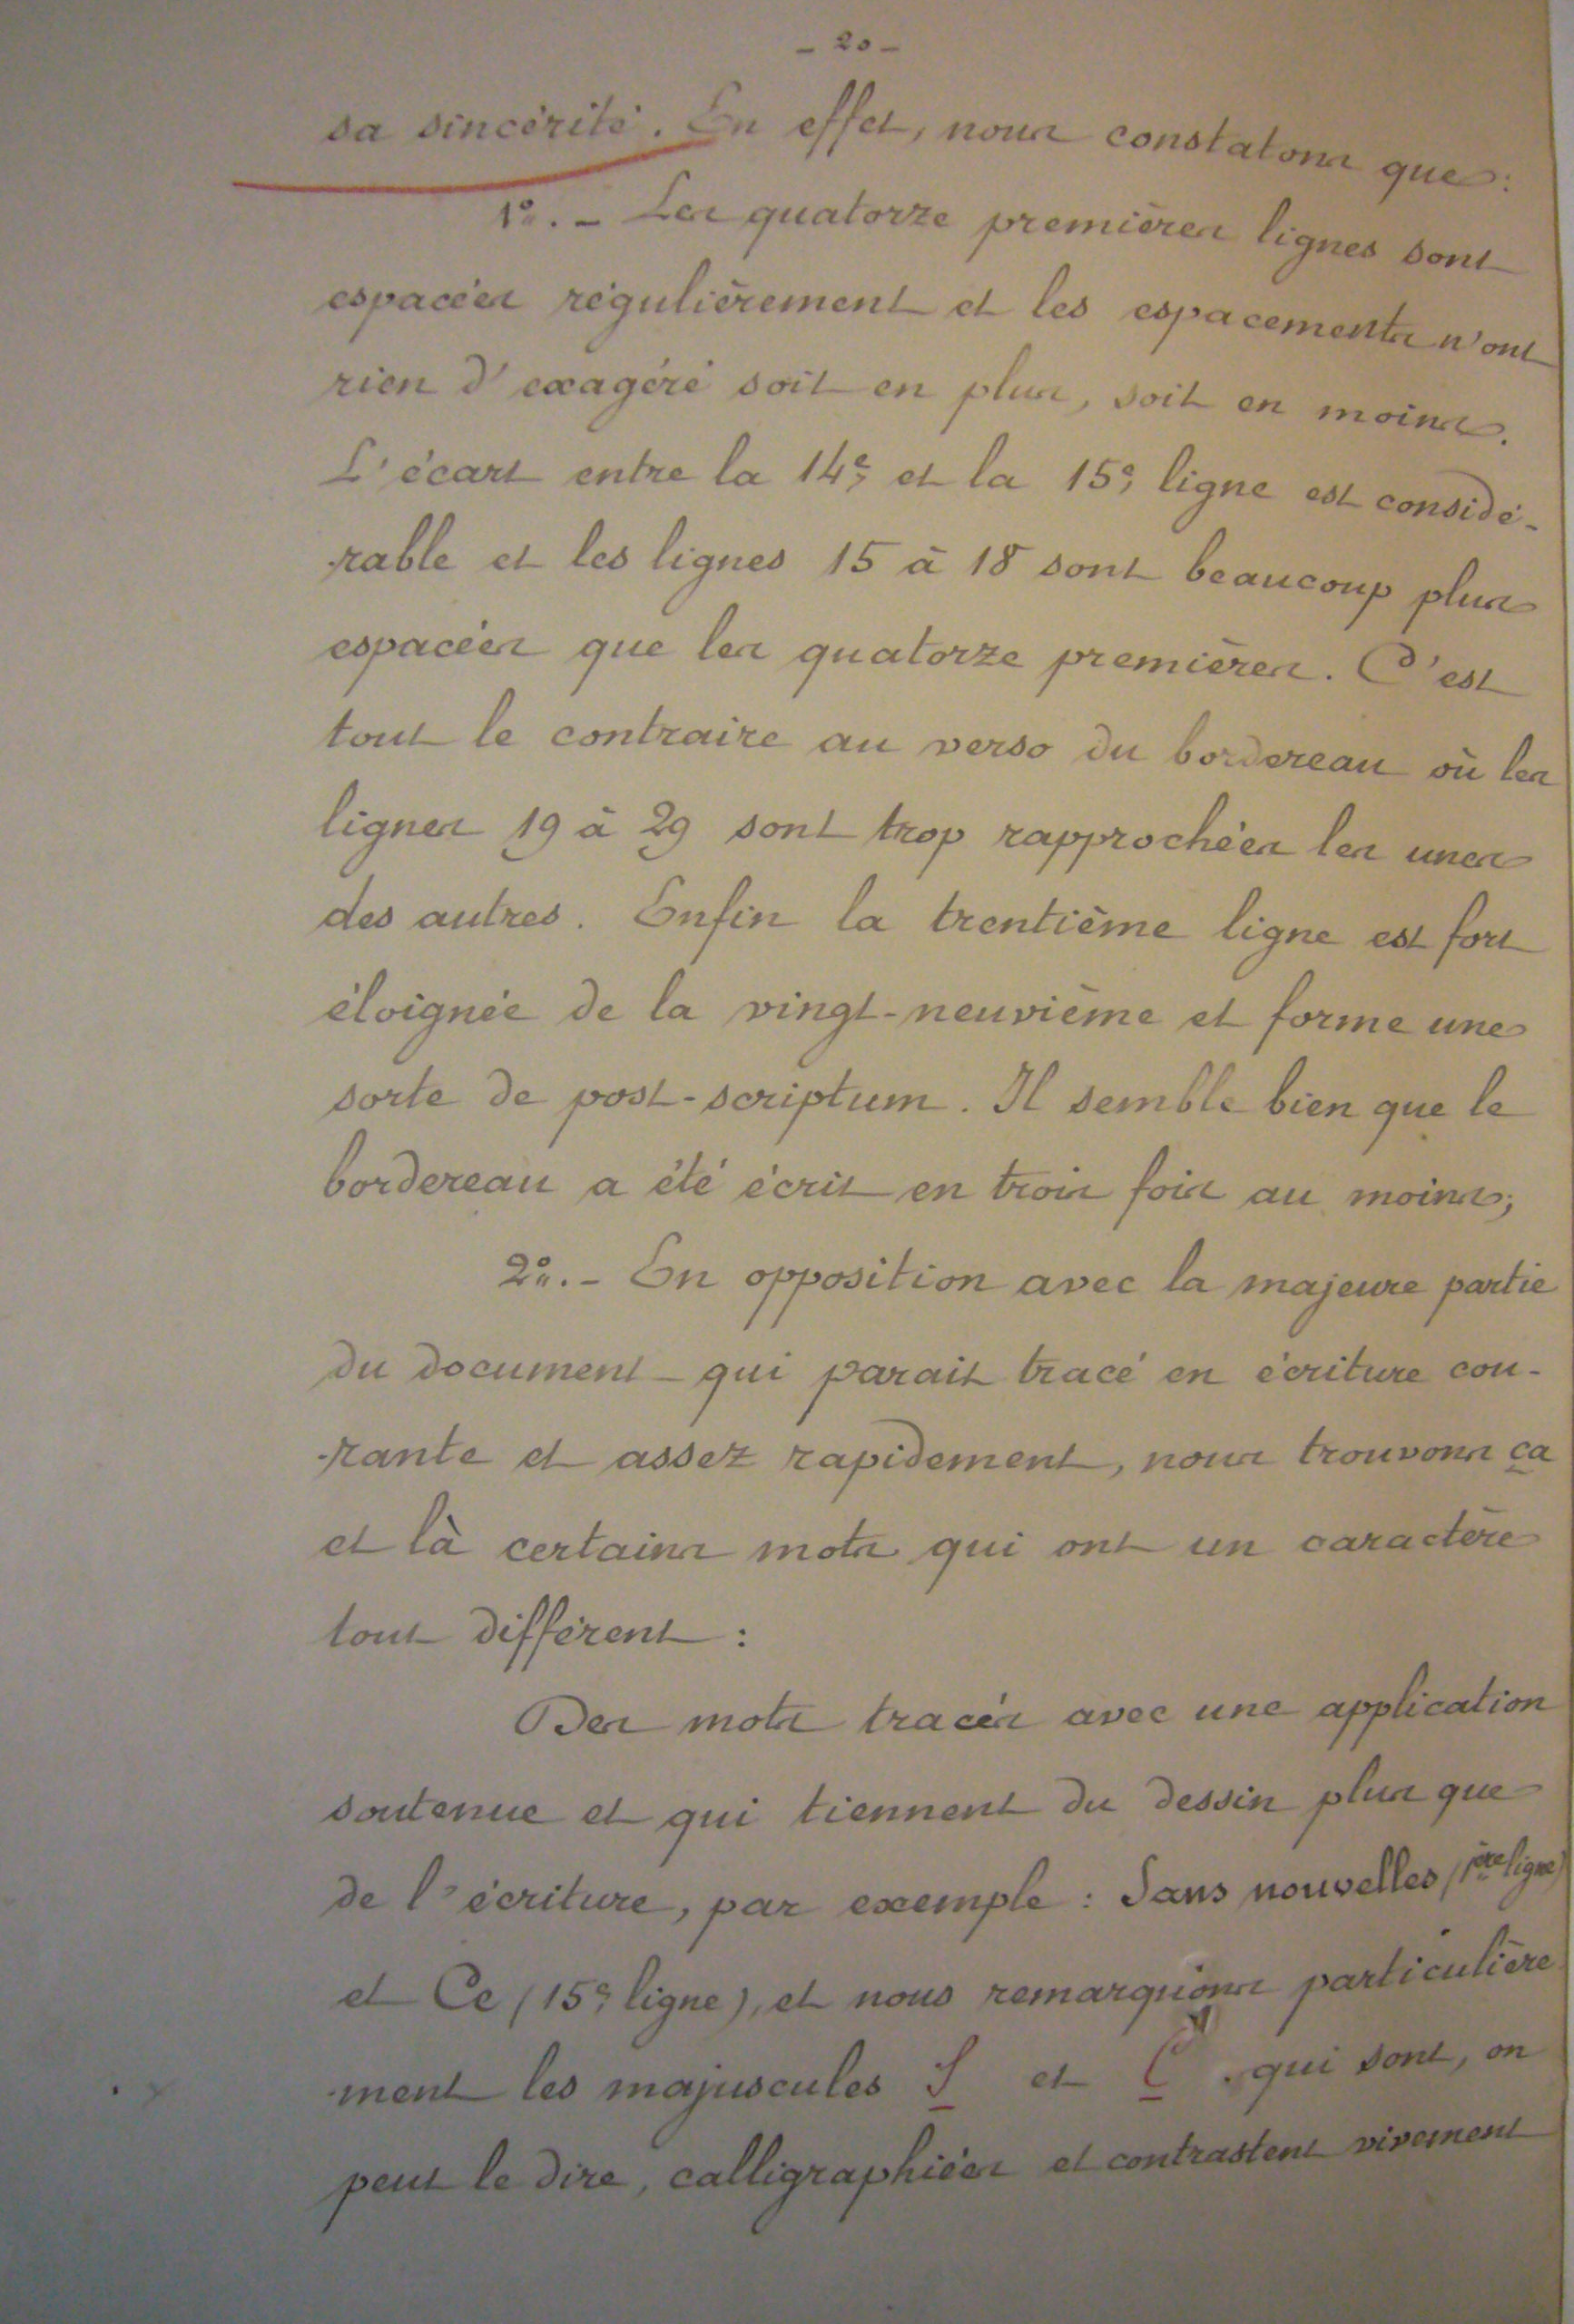 - 20 -
sa sincérité. En effet, nous constatons que :
1°. - Les quatorze premières lignes sont
espacées régulièrement et les espacements n'ont
rien d'exagéré soit en plus, soit en moins.
L'écart entre la 14e et la 15e ligne est considé-
rable et les lignes 15 à 18 sont beaucoup plus
espacées que les quatorze premières. C'est
tout le contraire au verso du bordereau où les
lignes 19 à 29 sont trop rapprochées les unes
des autres. Enfin la trentième ligne est fort
éloignée de la vingt-neuvième et forme une
sorte de post-scriptum. Il semble bien que le
bordereau a été écrit en trois fois au moins;
2°. - En opposition avec la majeure partie
du document qui parait tracé en écriture cou-
rante et assez rapidement, nous trouvons ça
et là certains mots qui ont un caractère
tout différent :
Des mots tracés avec une application
soutenue et qui tiennent du dessin plus que
de l'écriture, par exemple : Sans nouvelles (1ère ligne)
et Ce (15e ligne), et nous remarquons particulière
ment les majuscules S et C qui sont, on
peut le dire, calligraphiées et contrastent vivement